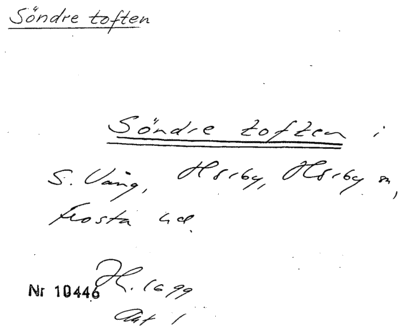 Söndre toften
Söndre toften i
S. Vång, Hörby, Hörby sn,
Frosta hd.
Nr 10446 H. 1699
Akt 1